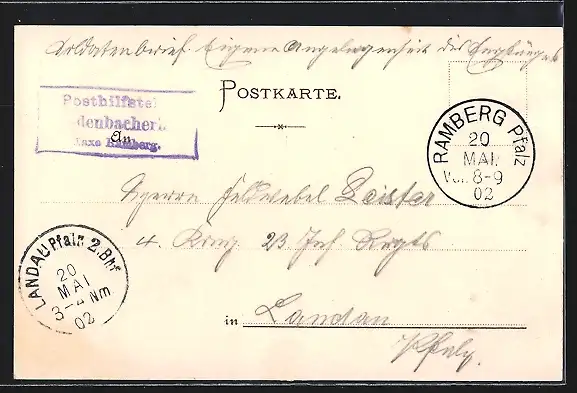 Soldatenbrief. Eigene Angelegenheit des Empfängers
POSTKARTE.
Posthilfstel
denbacherh
Taxe Ramberg.
An
RAMBERG Pfalz
20
MAI
Vor. 8-9
02
Herrn Feldwebel Deister
4. Komp. 23. Inf. Regts
LANDAU Pfalz 2. Bhf
20
MAI
3-4 Nm
02
in Landau
Pfalz.